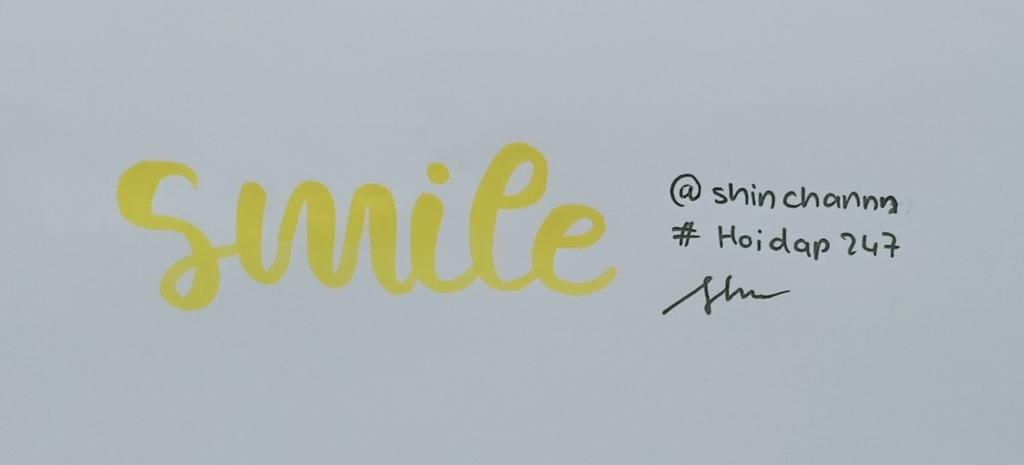 smile
@shinchannn
# Hoidap 247